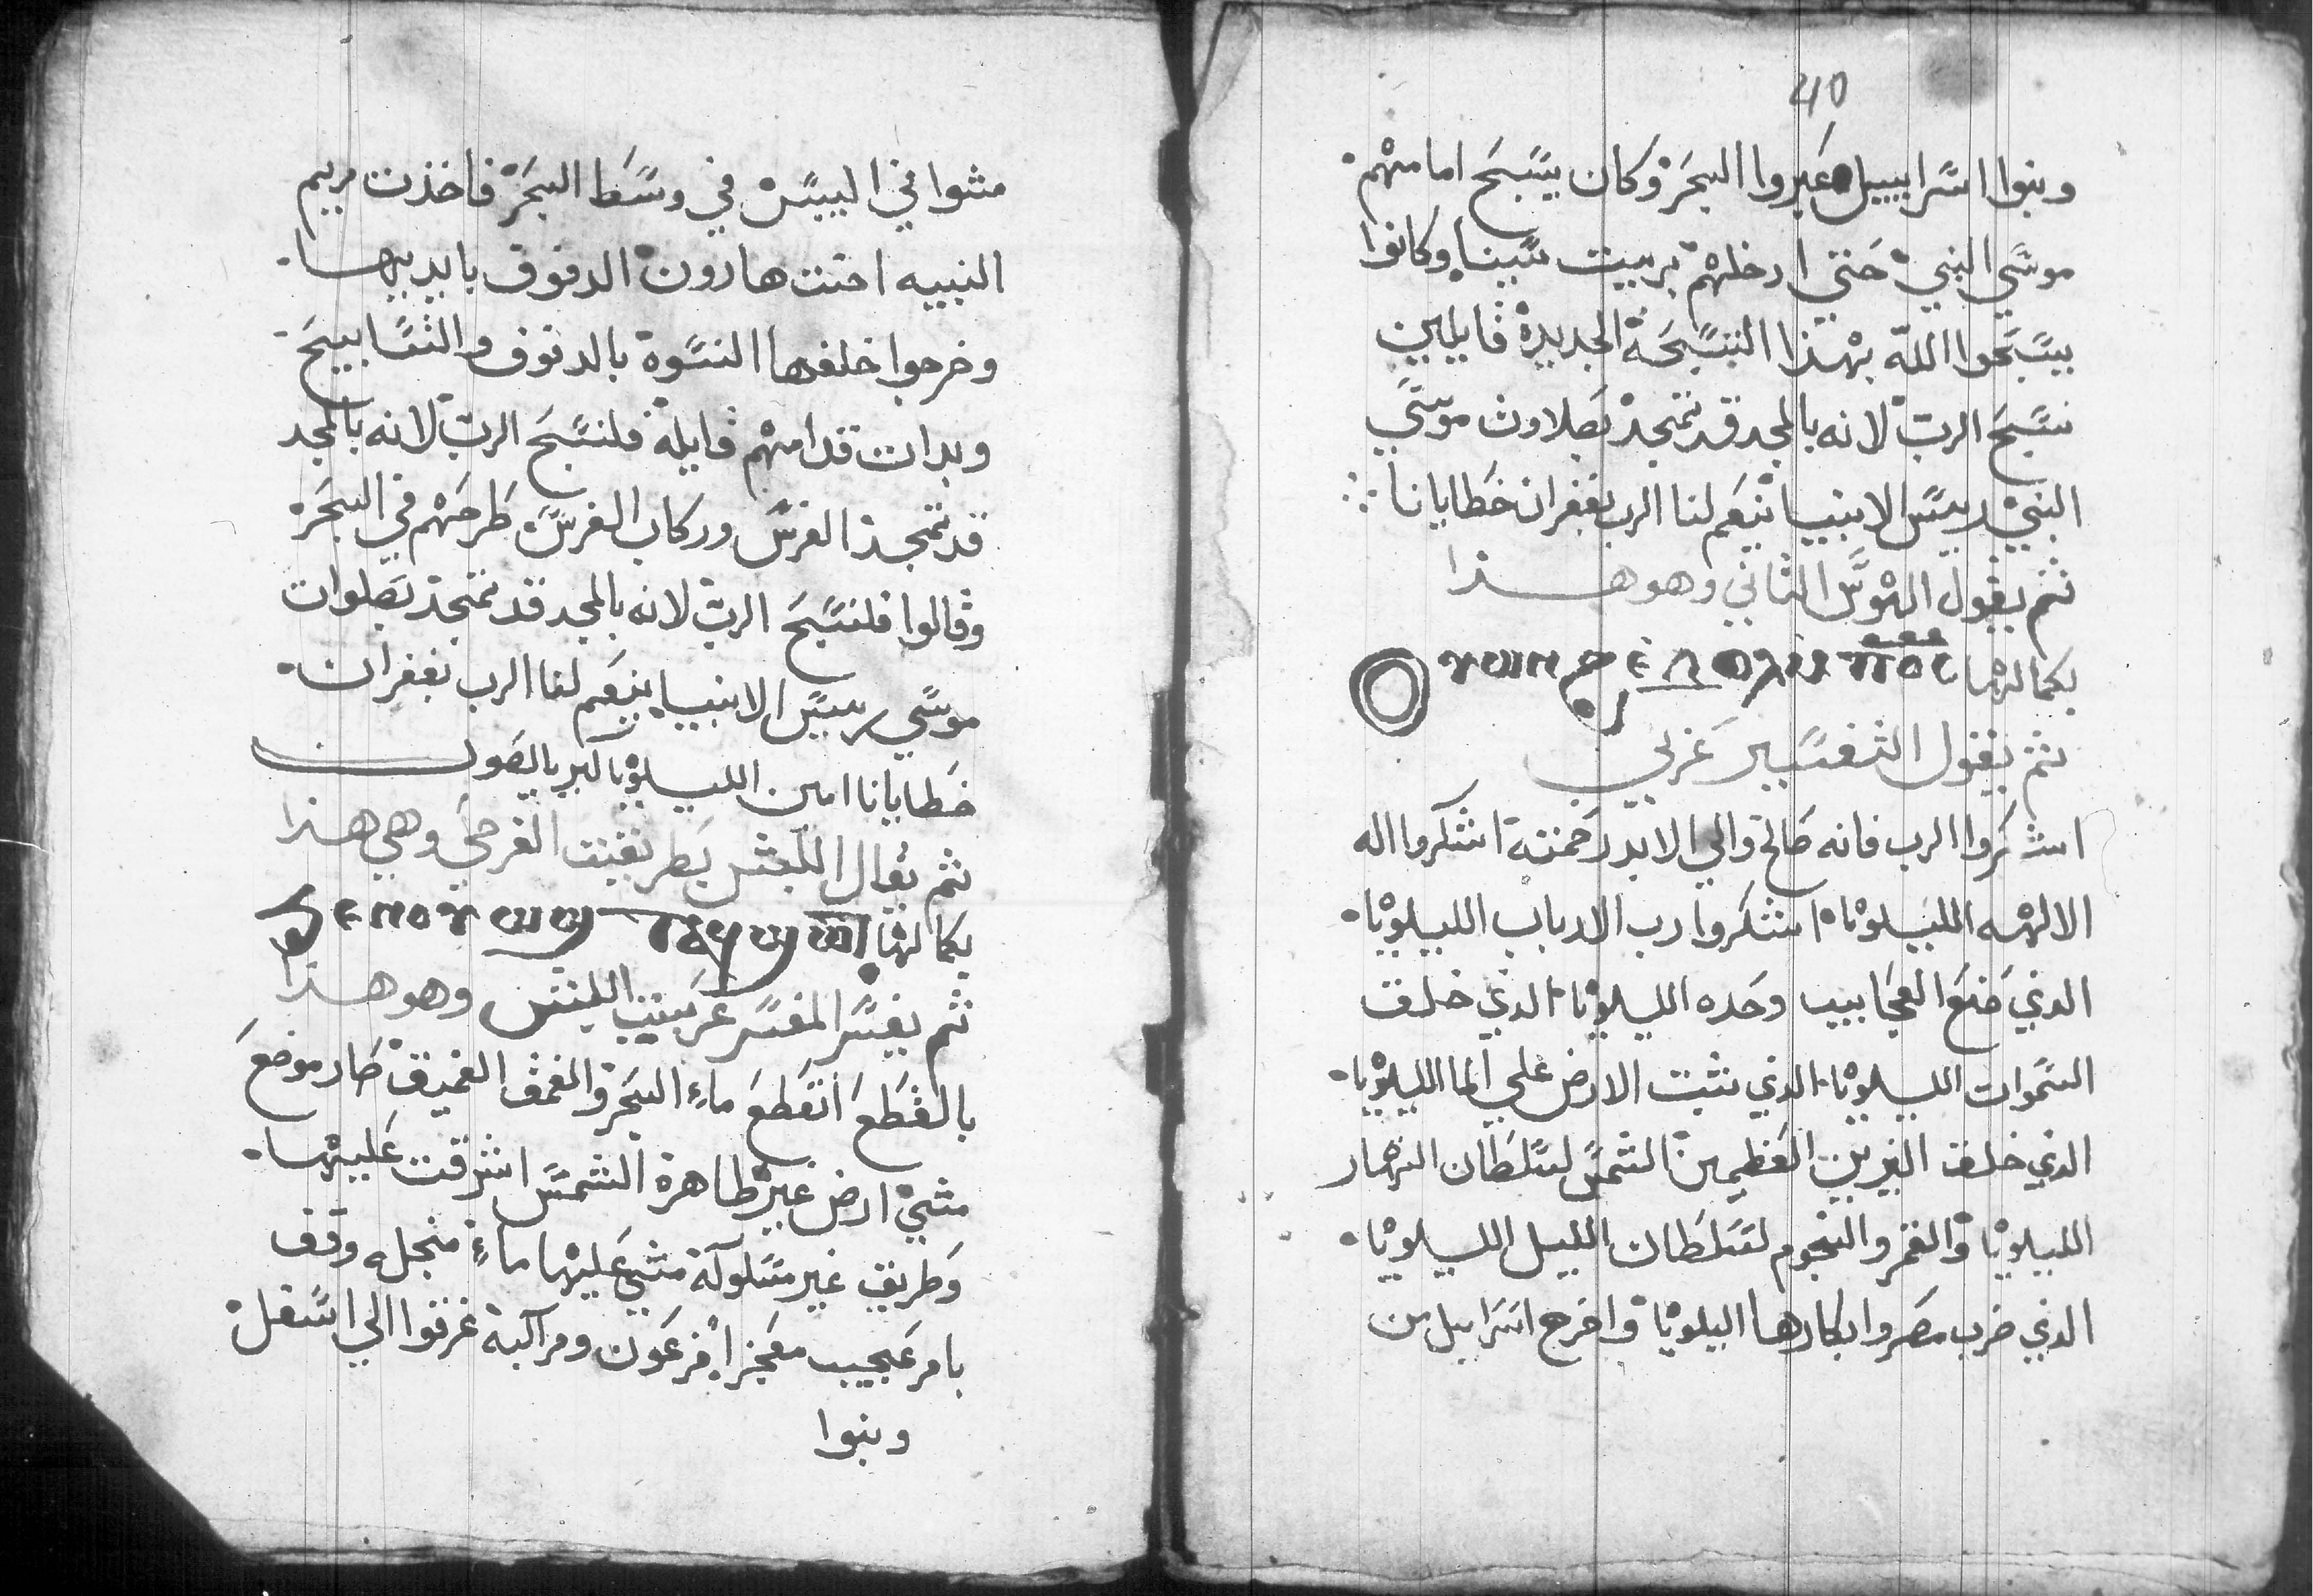 مشوا في اليبس في وسط البحر فاخذت مريم
النبيه اخت هارون الدفوف بايديها
وخرجوا خلفها النسوة بالدفوف والتسابيح
وبدات قدامهم قايلة فلنسبح الرب لانه بالمجد
قد تمجد الفرس وركاب الفرس طرحهم في البحر
وقالوا فلنسبح الرب لانه بالمجد قد تمجد بصلوات
موسي رييس الانبيا ينعم لنا الرب بغفران
خطايانا امين الليلويا
ثم يقال اللبش بطريقت الفرحي وهي هذا
بكمالها ϧⲉⲛⲟⲩϣⲱⲧ ⲁϥϣⲱⲧ
ثم يفسر المفسر عربيت اللبش وهو هذا
بالقطع انقطع ماء البحر والعمق العميق صار موضع
مشي ارض غير طاهرة الشمس اشرقت عليها
وطريق غير مسلوكة مشي عليها ماء منحل وقف
بامر عجيب معجز فرعون ومراكبة غرقوا الي اسفل
وبنوا
40
وبنوا اسراييل عبروا البحر وكان يسبح امامهم
موسي النبي حتي ادخلهم بريت سينا وكانوا
يسبحوا الله بهذا التسبحة الجديدة قايلين
نسبح الرب لانه بالمجد قد تمجد بصلاوت موسي
النبي رييس الانبيا ينعم لنا الرب بغفران خطايانا
ثم يقول الهوس الثاني وهو هذا
بكمالها ⲟⲩⲱⲛϩ ⲉⲃⲟⲗ
ثم يقول التفسير عربي
اشكروا الرب فانه صالح والي الابد رحمتة اشكروا اله
الالهه الليلويا اشكروا رب الارباب الليلويا
الذي صنع العجايب وحده الليلويا الذي خلق
السموات الليلويا الذي ثبت الارض علي الما الليلويا
الذي خلق النيرين العظيمين الشمس لسلطان النهار
الليلويا والقمر والنجوم لسلطان الليل الليلويا
الذي ضرب مصر وابكارها اليلويا واخرج اسراييل من